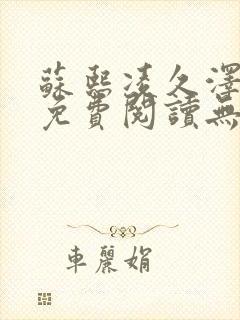 蘇熙凌久澤
免費閱讀無
車麗娟